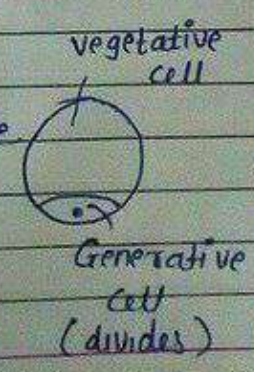 vegetative
cell
e
Generative
cell
(divides)